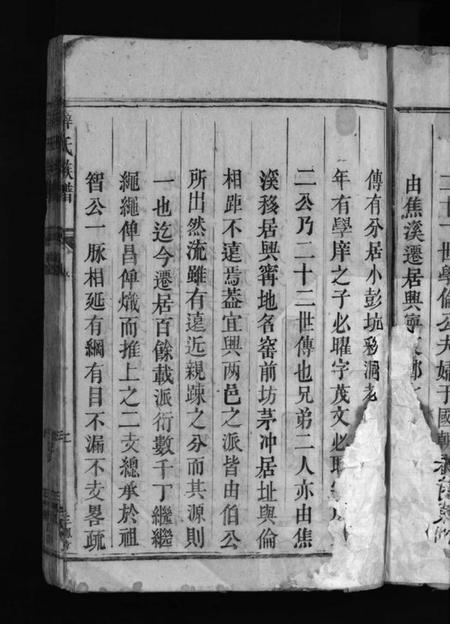 二十一世學倫公夫婦于國朝
由焦溪遷居興寧
傳有分居小彭坑
年有學庠之子必曜字茂文必
二公乃二十二世傳也兄弟二人亦由焦
溪移居興寗地名窑前坊茅冲居址與倫
相距不遠焉葢宜興两邑之派皆由伯公
所出然流雖有遠近親踈之分而其源則
一也迄今遷居百餘載派衍數千丁繼繼
繩繩俾昌俾熾而推上之二支總承於祖
智公一脉相延有綱有目不漏不支畧疏
氏族譜